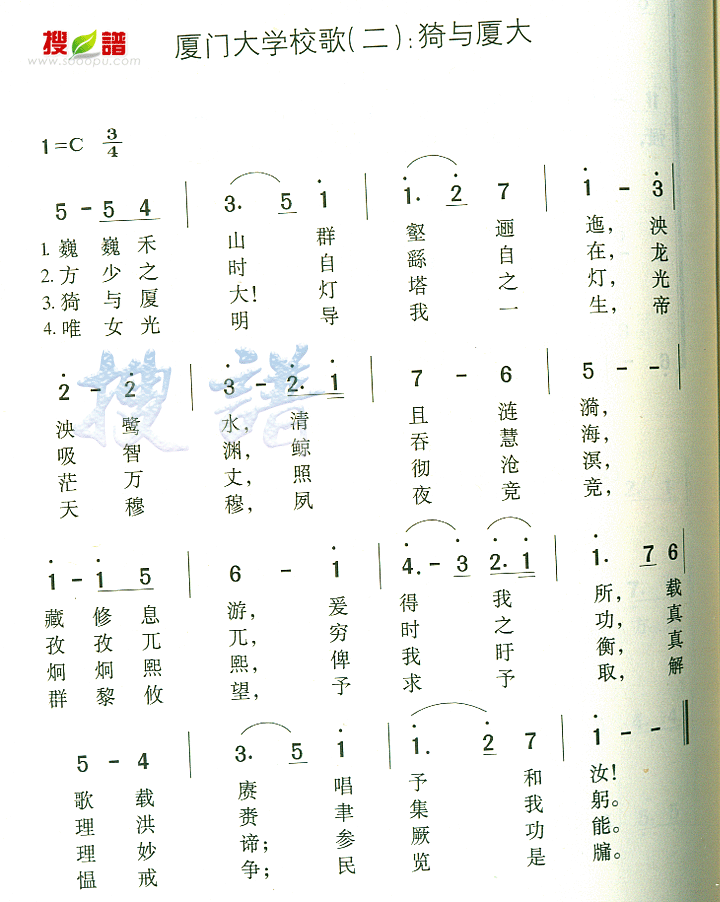 搜谱
www.sooopu.com
厦门大学校歌(二):猗与厦大
1=C 3/4
5 - 5 4 | 3. 5 1 | 1. 2 7 | 1 - 3 |
1. 巍 巍 禾 山 群 壑 逦 迤, 泱
2. 方 少 之 时 自 繇 自 在, 龙
3. 猗 与 厦 大! 灯 塔 之 灯, 光
4. 唯 女 光 明 导 我 一 生, 帝
2 - 2 | 3 - 2. 1 | 7 - 6 | 5 - - |
泱 鹭 水, 清 且 涟 漪,
吸 智 渊, 鲸 吞 慧 海,
茫 万 丈, 照 彻 沧 溟,
天 穆 穆, 夙 夜 竞 竞,
1 - 1 5 | 6 - 1 | 4. - 3 2. 1 | 1. 7 6
藏 修 息 游, 爰 得 我 所, 载
孜 孜 兀 兀, 穷 时 之 功, 真
炯 炯 熙 熙, 俾 我 盱 衡, 真
群 黎 攸 望, 予 求 予 取, 解
5 - 4 | 3. 5 1 | 1. 2 7 | 1 - - ‖
歌 载 赓 唱 予 和 汝!
理 洪 赉 聿 集 我 躬。
理 妙 谛; 参 厥 功 能。
愠 戒 争; 民 览 是 牖。
搜谱